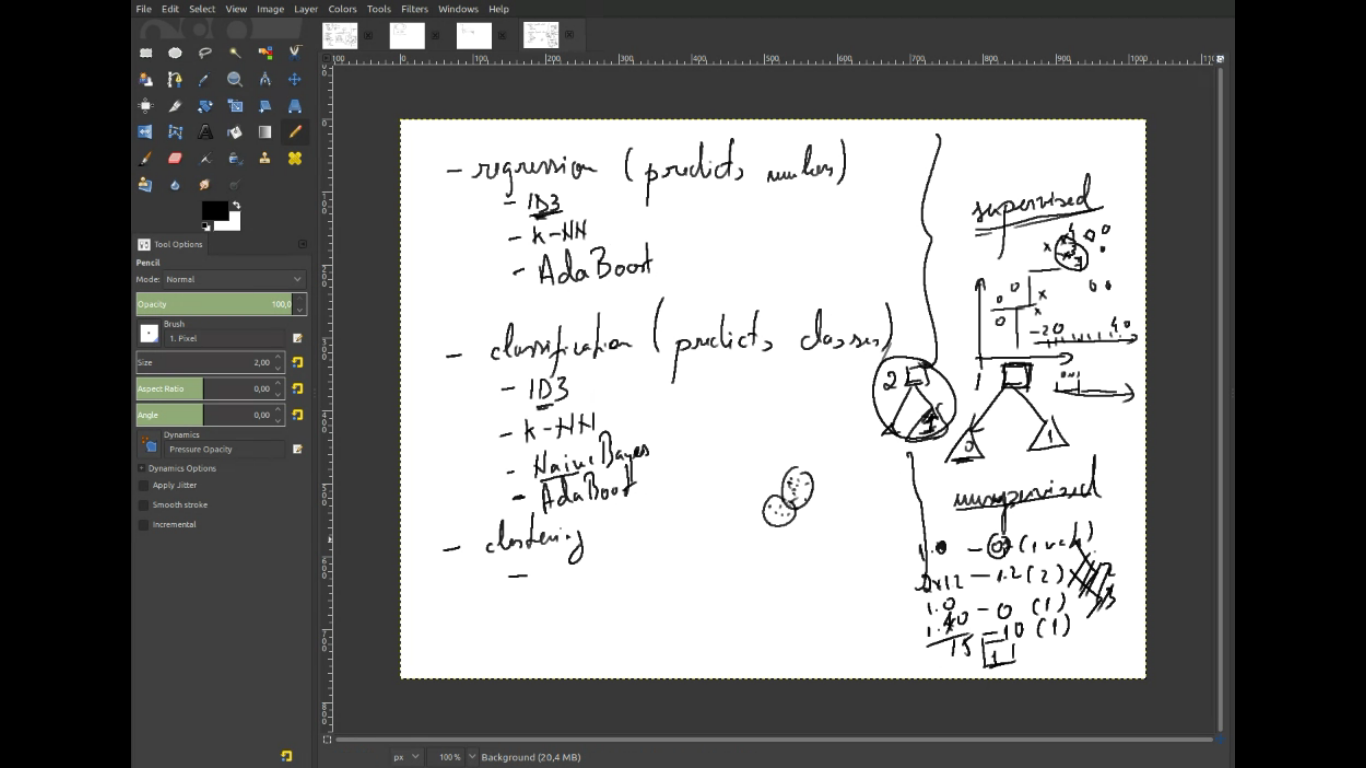 File Edit Select View Image Layer Colors Tools Filters Windows Help
100 0 100 200 300 400 500 600 700 800 900 1000
Tool Options
Pencil
Mode: Normal
Opacity 100,0
Brush
1. Pixel
Size 2,00
Aspect Ratio 0,00
Angle 0,00
Dynamics
Pressure Opacity
Dynamics Options
Apply Jitter
Smooth stroke
Incremental
- regression (predicts numbers)
- ID3
- K-NN
- AdaBoost
- classification (predicts classes)
- ID3
- K-NN
- Naive Bayes
- AdaBoost
- clustering
-
supervised
-20 40
2
1
0 1
unsupervised
- 1.2 (2)
1.0 - 0 (1)
- 10 (1)
15
px 100 % Background (20,4 MB)